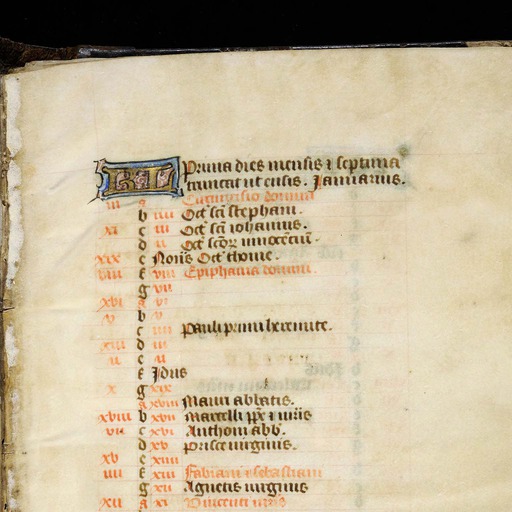 KL Prima dies mensis & septima
truncat ut ensis. Januarius.
iii a Circumcisio domini
b iiii Oct̄ sc̄i stephani.
xi c iii Oct̄ sc̄i iohannis.
d ii Oct̄ sc̄oꝝ innocentiū.
xix e Nonis Oct̄ thome.
viii f viii Epiphania domini.
g vii
xvi a vi
v b v
c iiii Pauli primi heremite.
xiii d iii
ii e ii
f Idus
x g xix
a xviii Mauri abbatis.
xviii b xvii Marcelli pp̄e & m̄ris
vii c xvi Anthonii abb̄.
d xv Prisce virginis.
xv e xiiii
iiii f xiii Fabiani & sebastiani
g xii Agnetis virginis
xii a xi Vincentii m̄ris